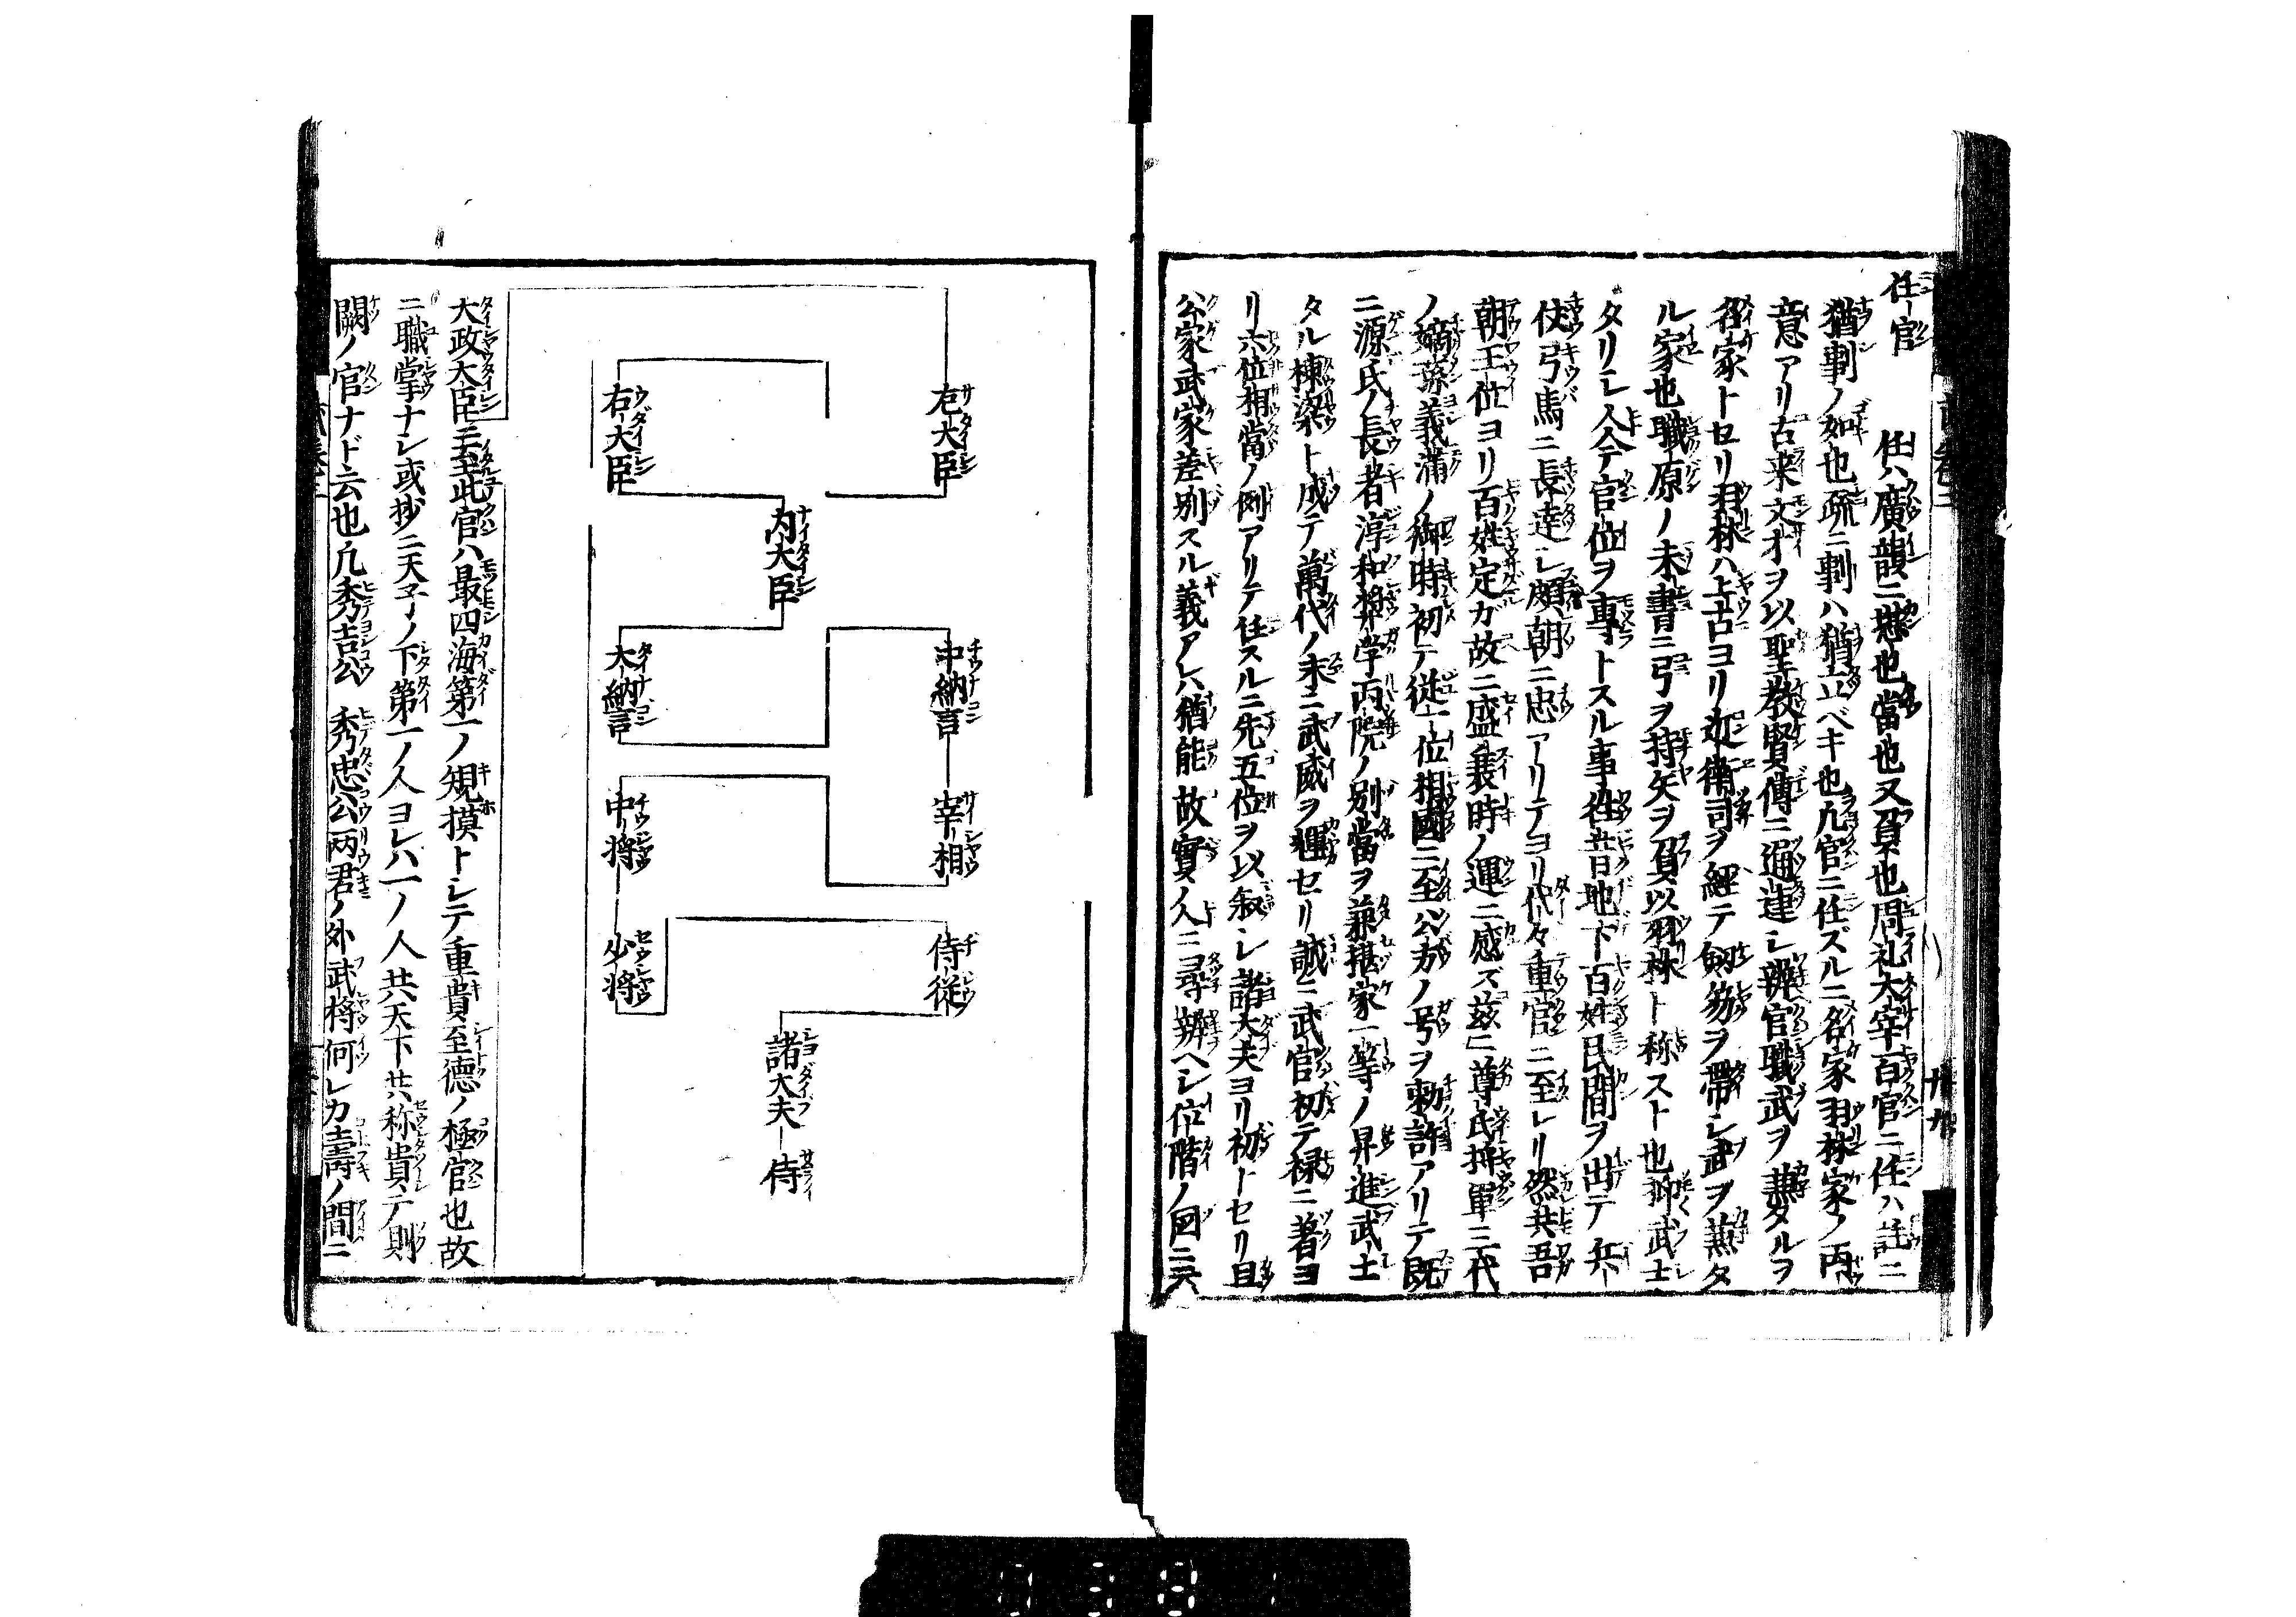 任官 任ハ廣韻ニ堪也當也又負也周礼大宰百官ニ任ハ註ニ
猶剚ノ如也疏ニ剚ハ猶立ベキ也凢官ニ任ズルニ名家羽林家ノ両
意アリ古来文才ヲ以聖教賢傳ニ通達シ辨官職武ヲ兼タルヲ
名家トセリ羽林ハ上古ヨリ近衛司ヲ経テ劔笏ヲ帶シ武ヲ兼タ
ル家也職原ノ未書ニ弓ヲ持矢ヲ負以羽林ト称スト也抑武士
タリシ人今官位ヲ専トスル事往昔地下百姓民間ヲ出テ兵
伏弓馬ニ長達シ頗朝ニ忠アリテヨリ代々重官ニ至レリ然共吾
朝王位ヨリ百姓定ガ故ニ盛衰時ノ運ニ感ズ茲ニ尊氏将軍三代
ノ嫡孫義満ノ御時初テ従一位相國ニ至公方ノ号ヲ勅許アリテ既
ニ源氏ノ長者淳和奨学両院ノ別當ヲ兼摂家一等ノ昇進武士
タル棟梁ト成テ萬代ノ末ニ武威ヲ耀セリ誠ニ武官初テ禄ニ著ヨ
リ六位相當ノ例アリテ任スルニ先五位ヲ以叙シ諸大夫ヨリ初トセリ且
公家武家差別スル義アレハ猶能故實ノ人ニ尋辨ヘシ位階ノ図ニ云
右大臣
左大臣
内大臣
大納言
中納言
中将
宰相
少将
侍従
諸大夫
侍
大政大臣ニ至此官ハ最四海第一ノ規摸トシテ重貴至德ノ極官也故
ニ職掌ナシ或抄ニ天子ノ下第一ノ人ヨレハ一ノ人共天下共称貴テ則
闕ノ官ナド云也凢秀吉公 秀忠公両君ノ外武将何レカ壽ノ間ニ